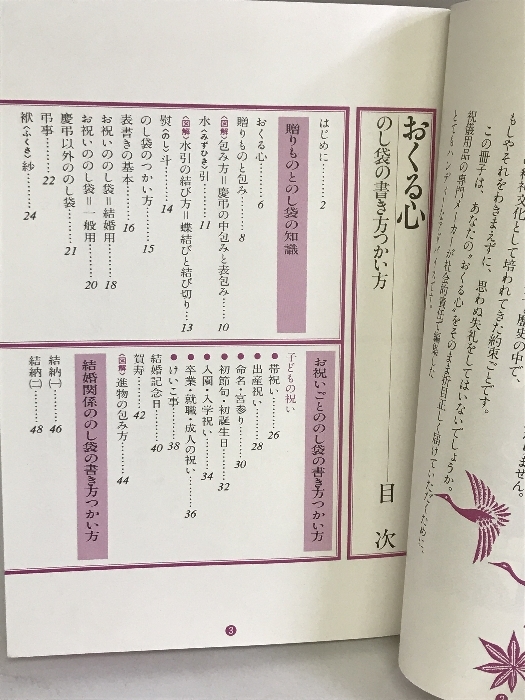 おくる心
のし袋の書き方つかい方
目次
はじめに……2
贈りものとのし袋の知識
おくる心……6
贈りものと包み……8
〈図解〉包み方＝慶弔の中包みと表包み……10
水〈みずひき〉引……11
〈図解〉水引の結び方＝蝶結びと結び切り……13
熨〈のし〉斗……14
のし袋のつかい方……15
表書きの基本……16
お祝いののし袋＝結婚用……18
お祝いののし袋＝一般用……20
慶弔以外ののし袋……21
弔事……22
袱〈ふくさ〉紗……24
お祝いごとののし袋の書き方つかい方
子どもの祝い
●帯祝い……26
●出産祝い……28
●命名・宮参り……30
●初節句・初誕生日……32
●入園・入学祝い……34
●卒業・就職・成人の祝い……36
●けいこ事……38
結婚記念日……40
賀寿……42
〈図解〉進物の包み方……44
結婚関係ののし袋の書き方つかい方
結納㈠……46
結納㈡……48
3
もしやそれをわきまえずに、思わぬ失礼をしてはいないでしょうか。
この冊子は、あなたの"おくる心"をそのまま折目正しく届けていただくために、